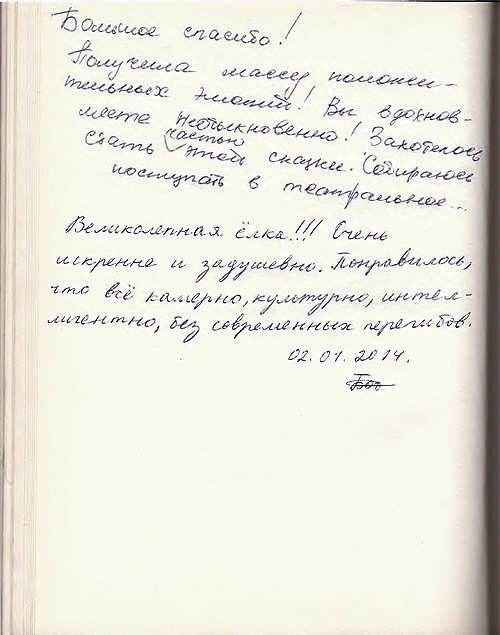 Большое спасибо!
Получила массу положи-
тельных эмоций! Вы вдохнов-
ляете необыкновенно! Захотелось
стать частью этой сказки. Собираюсь
поступать в театральное...
Великолепная ёлка!!! Очень
искренне и задушевно. Понравилось,
что всё камерно, культурно, интел-
лигентно, без современных перегибов.
02.01.2014.